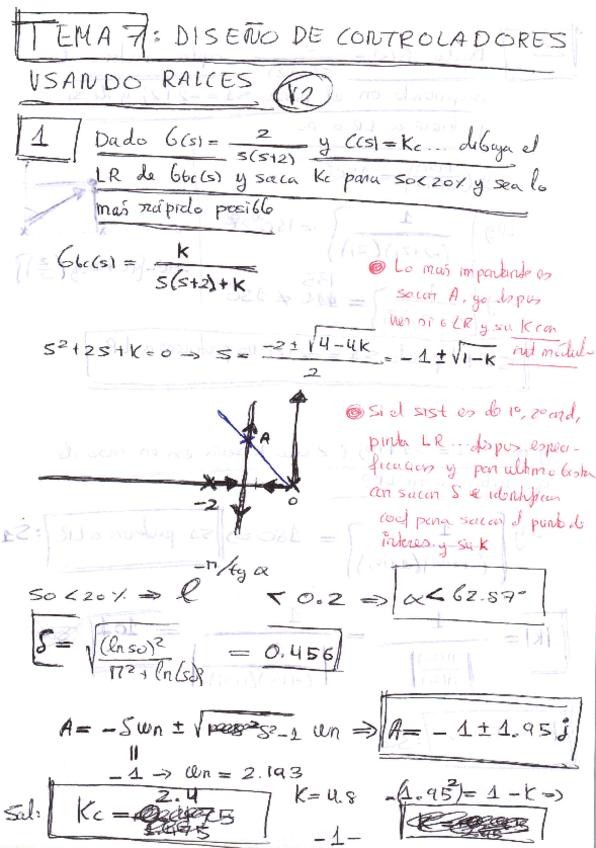 TEMA 7: DISEÑO DE CONTROLADORES
USANDO RAICES V2
1 Dado G(s) = 2/s(s+2) y C(s) = Kc ... dibuja el
LR de Gbc(s) y saca Kc para so<20% y sea lo
mas rápido posible
Gbc(s) = K/s(s+2)+K
Lo mas importante es
sacar A, ya
LR y su K con
s²+2s+K=0 → s = -2±√4-4K/2 = -1±√1-K
A
-2
0
Si el sist es de 1º, 2º ord,
pinta LR ...
y por ultimo
con sacar S e identifican
coef para sacar el punto de
interes y su K
so<20% ⇒ e^-π/tg α < 0.2 ⇒ α<62.87°
δ = √(ln so)²/π²+ln(so)² = 0.456
A = -δwn ± √δ²-1 wn ⇒ A = -1±1.95j
-1 → wn = 2.193
Sol: Kc = 2.4
K=4.8
-(1.95²)=1-K ⇒
-1-